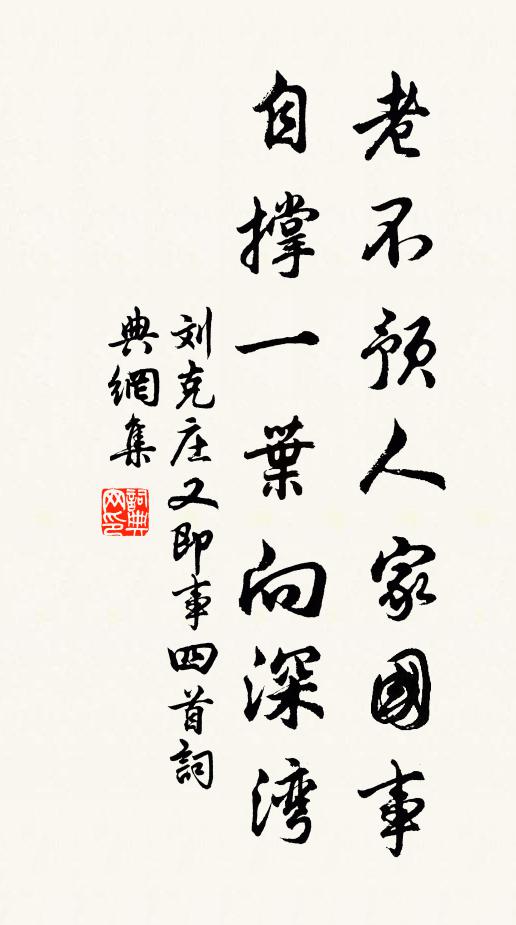 老不預人家國事
自撑一葉向深湾
刘克庄又即事四首詞
典網集
詞典网印